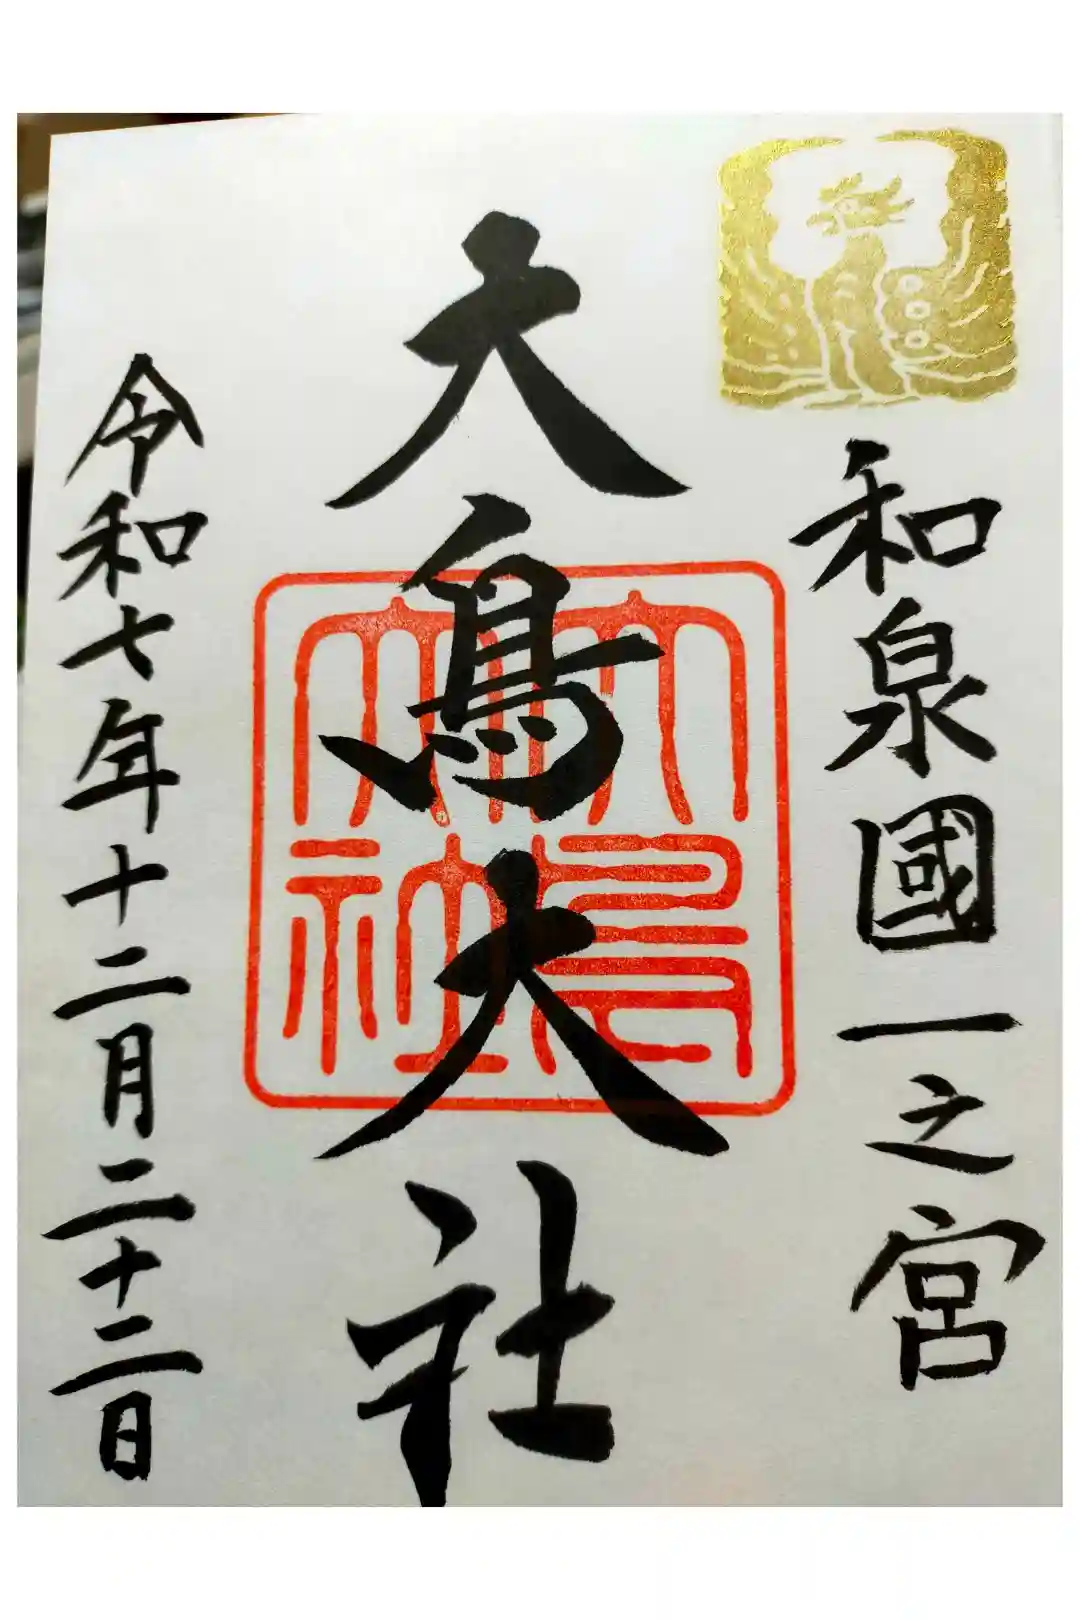 和泉國一之宮
大鳥大社
大鳥大社
令和七年十二月二十二日